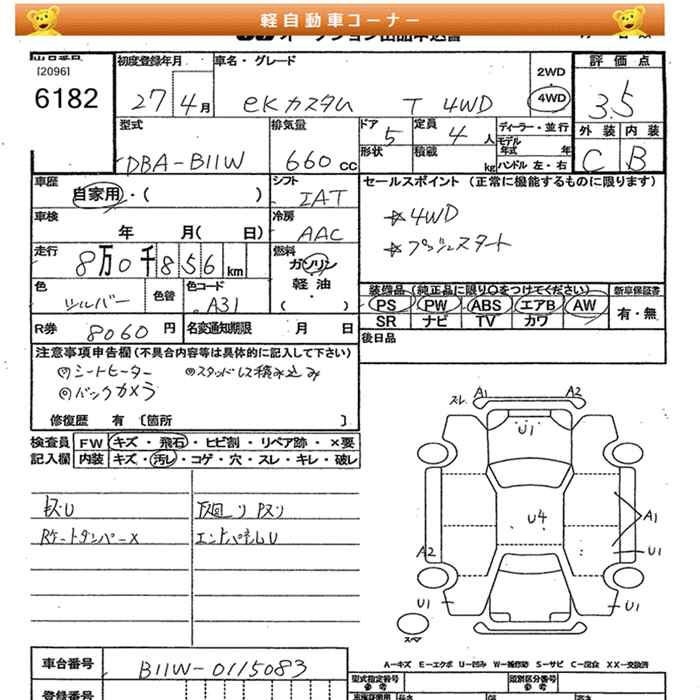 軽自動車コーナー
[2096]
6182
初度登録年月
27 4月
車名・グレード
eKカスタム T 4WD
2WD
4WD
評価点
3.5
型式
DBA-B11W
排気量
660 CC
ドア
5
形状
定員
4 人
積載
kg
ディーラー・並行
モデル
年式 年
ハンドル 左・右
外装 内装
C B
車歴
自家用・( )
シフト
IAT
セールスポイント (正常に機能するものに限ります)
☆4WD
☆プッシュスタート
車検
年 月( 日)
冷房
AAC
走行
8万0千856km
燃料
ガソリン
軽油
・( )
色
シルバー
色替
色コード
A31
装備品(純正品に限り○をつけてください)
PS PW ABS エアB AW
SR ナビ TV カワ
新車保証書
有・無
R券 8060円
名変通知期限 月 日
後日品
注意事項申告欄(不具合内容等は具体的に記入して下さい)
シートヒーター スタッドレス積み込み
バックカメラ
修復歴 有 〔箇所 〕
検査員
記入欄
FW キズ・飛石・ヒビ割・リペア跡・×要
内装 キズ・汚レ・コゲ・穴・スレ・キレ・破レ
スレ A1 A2
U1
U4
A1
A2 U1
U1 U1
スペア
エンドパネルU
A-キズ E-エクボ U-凹み
車台番号 B11W-0115083
型式指定番号
類別区分番号
参考
登録番号